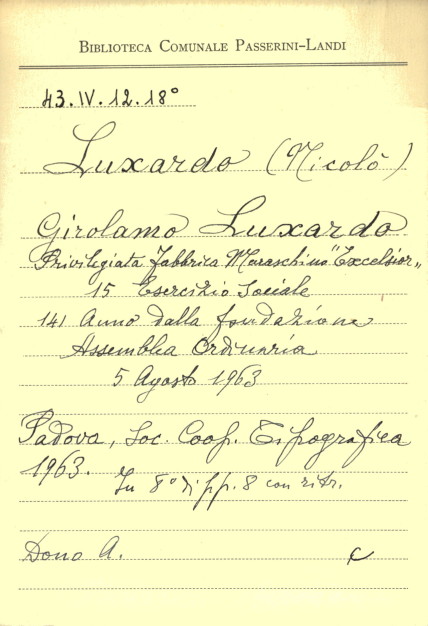 BIBLIOTECA COMUNALE PASSERINI-LANDI
43.IV.12.18°
Luxardo (Nicolò)
Girolamo Luxardo
Privilegiata Fabbrica Maraschino "Excelsior"
15 Esercizio Sociale
141 Anno dalla fondazione
Assemblea Ordinaria
5 Agosto 1963
Padova, Soc. Coop. Tipografica
1963.
In 8° di pp. 8 con ritr.
Dono A. C